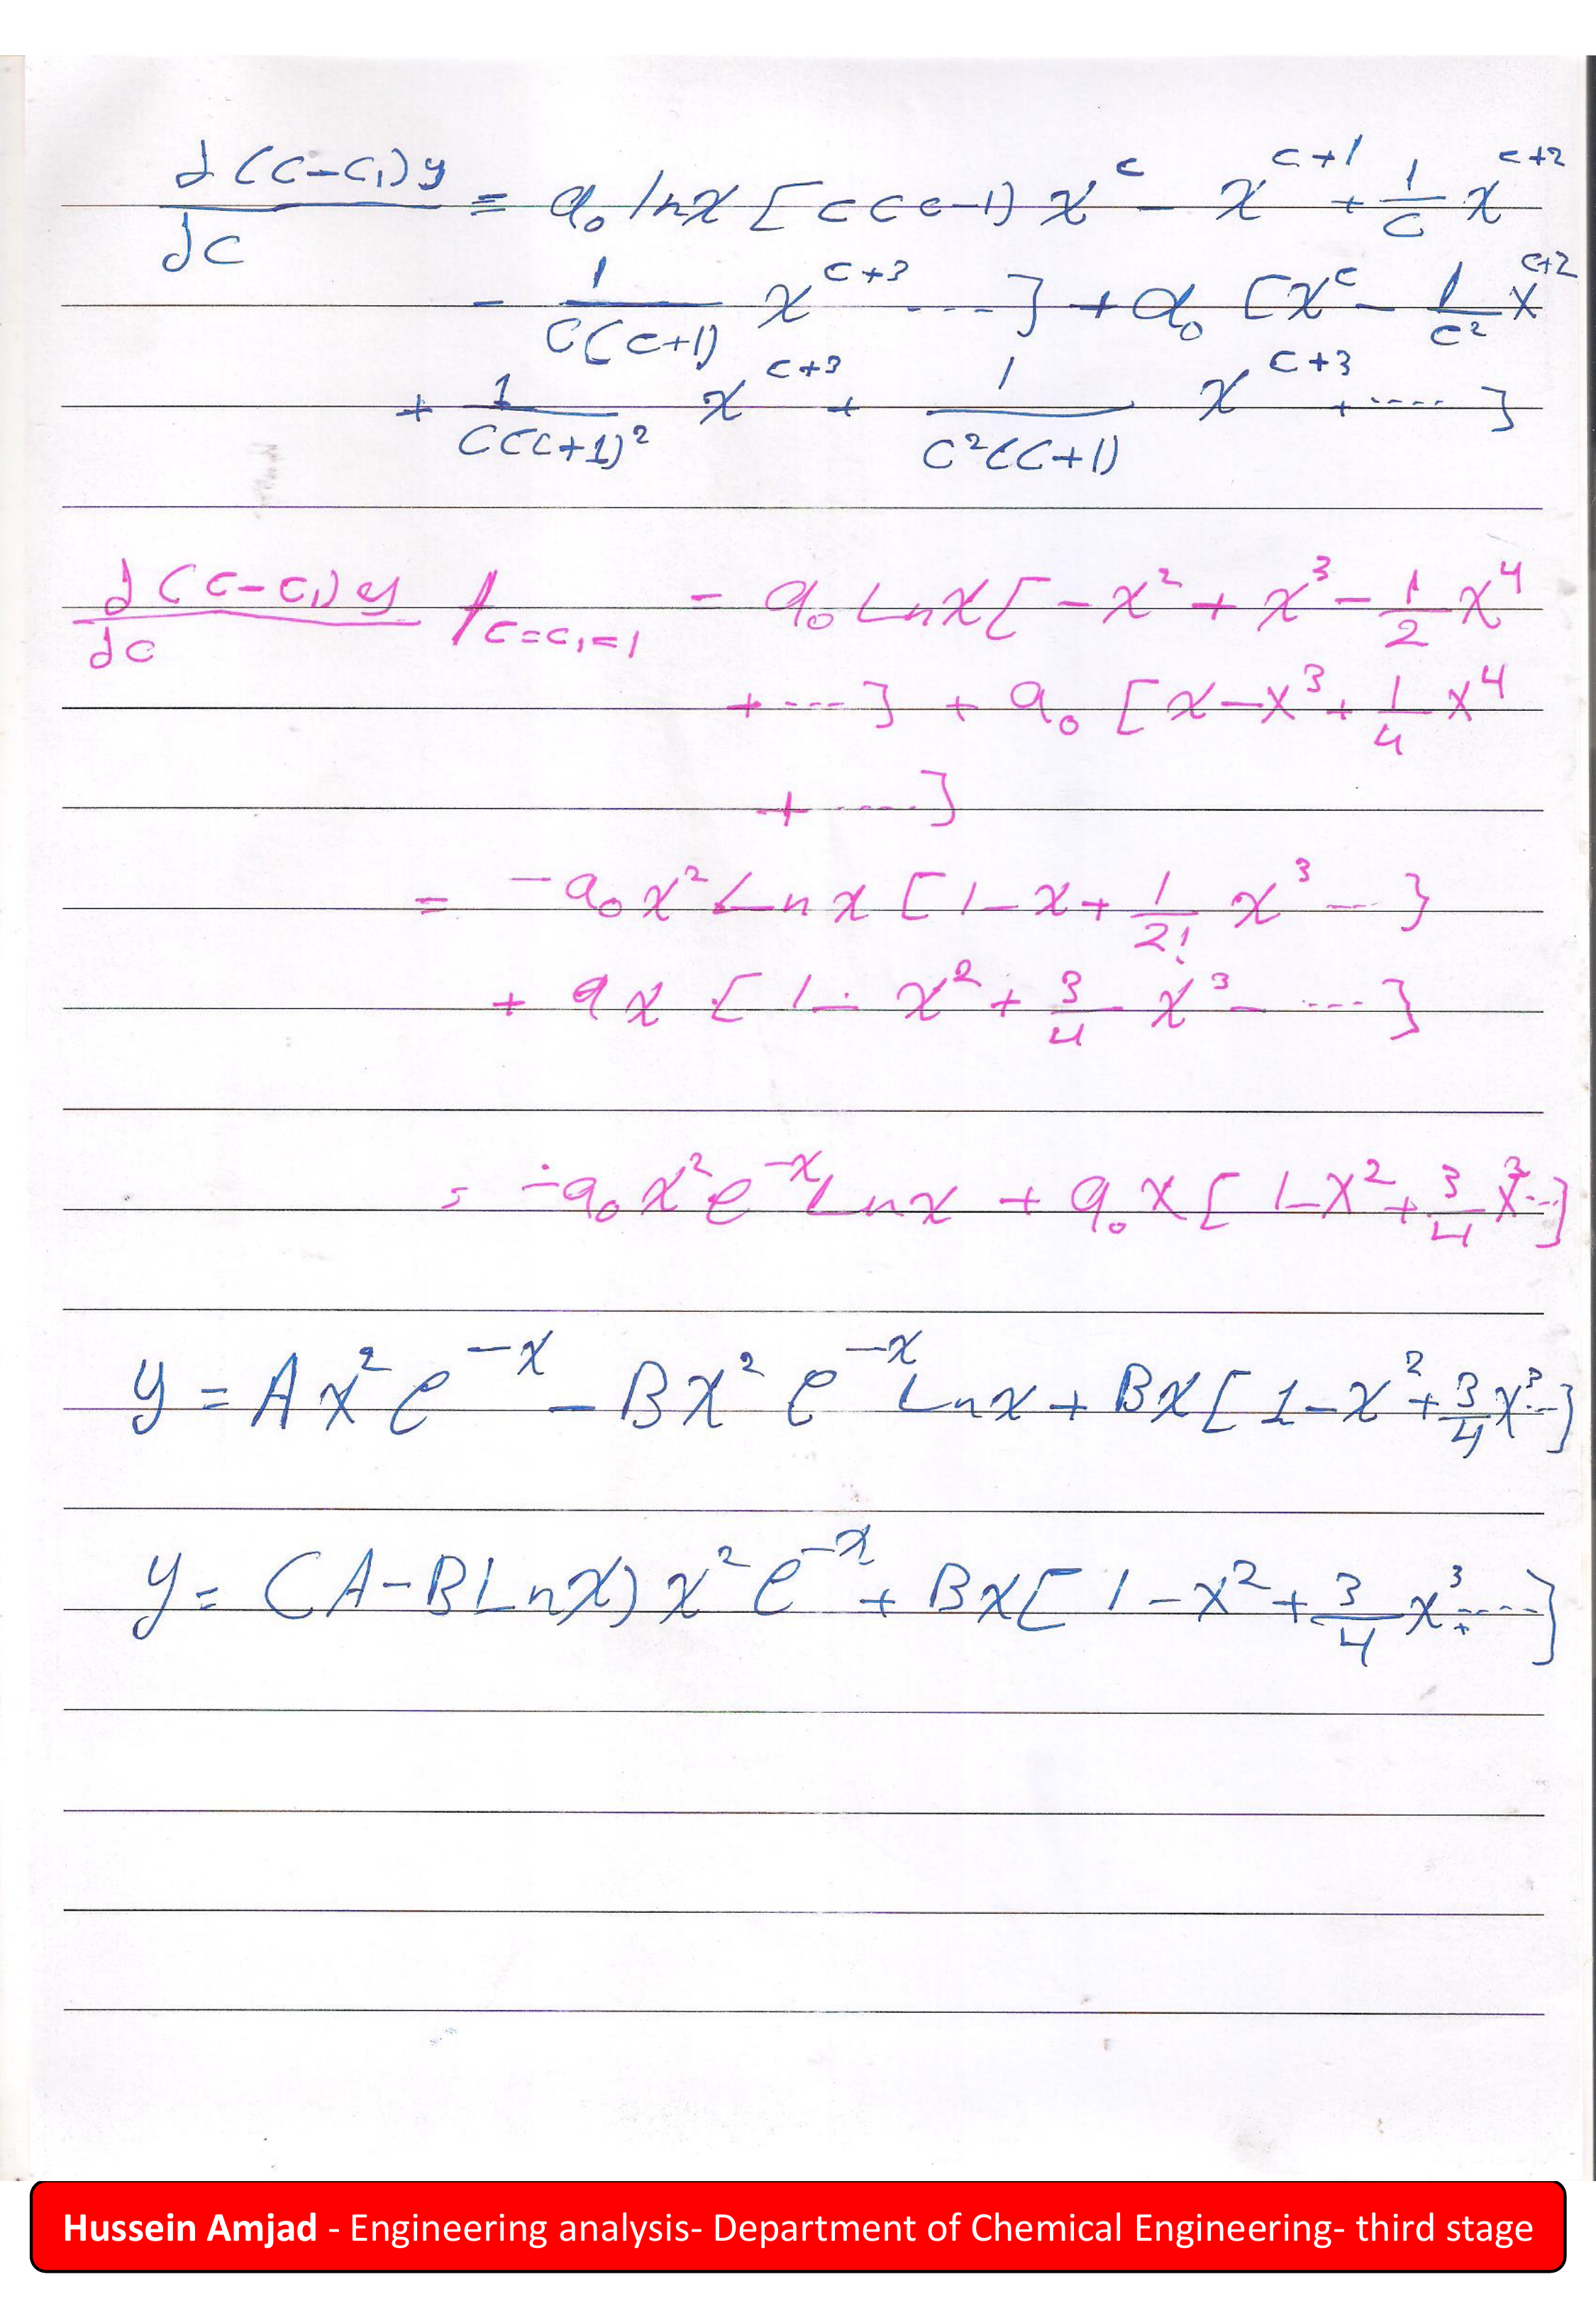 ∂(c-c₁)y/∂c = a₀ lnx [c(c-1) x^c - x^(c+1) + 1/c x^(c+2)
- 1/(c(c+1)) x^(c+3) ....] + a₀ [x^c - 1/c² x^(c+2)
+ 1/(c(c+1)²) x^(c+3) + 1/(c²(c+1)) x^(c+3) + ....]
∂(c-c₁)y/∂c /c=c₁=1 = a₀ Lnx [-x² + x³ - 1/2 x⁴
+ ....] + a₀ [x - x³ + 1/4 x⁴
+ ....]
= -a₀x² Ln x [1 - x + 1/2! x³ ...]
+ a x [1 - x² + 3/4 x³ - ....]
= -a₀ x² e^(-x) Ln x + a₀ x [1 - x² + 3/4 x³ ...]
y = A x² e^(-x) - B x² e^(-x) Ln x + B x [1 - x² + 3/4 x³ ...]
y = (A - B Ln x) x² e^(-x) + B x [1 - x² + 3/4 x³ + ....]
Hussein Amjad - Engineering analysis- Department of Chemical Engineering- third stage